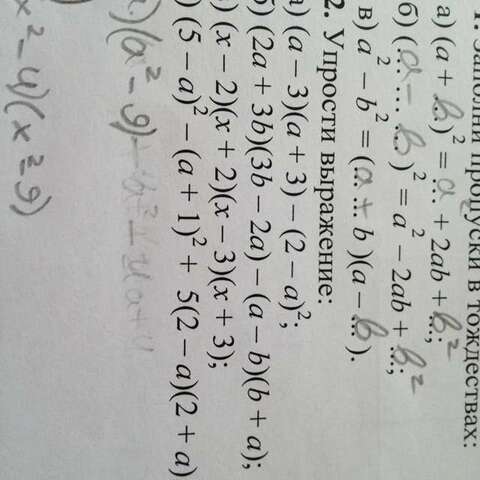 1. Заполни пропуски в тождествах:
а) (a + b)² = a² + 2ab + b²;
б) (a – b)² = a² – 2ab + b²;
в) a² – b² = (a + b)(a – b).
2. Упрости выражение:
а) (a – 3)(a + 3) – (2 – a)²;
б) (2a + 3b)(3b – 2a) – (a – b)(b + a);
(x – 2)(x + 2)(x – 3)(x + 3);
) (5 – a)² – (a + 1)² + 5(2 – a)(2 + a)
(a² – 9)
x² – 4)(x² – 9)